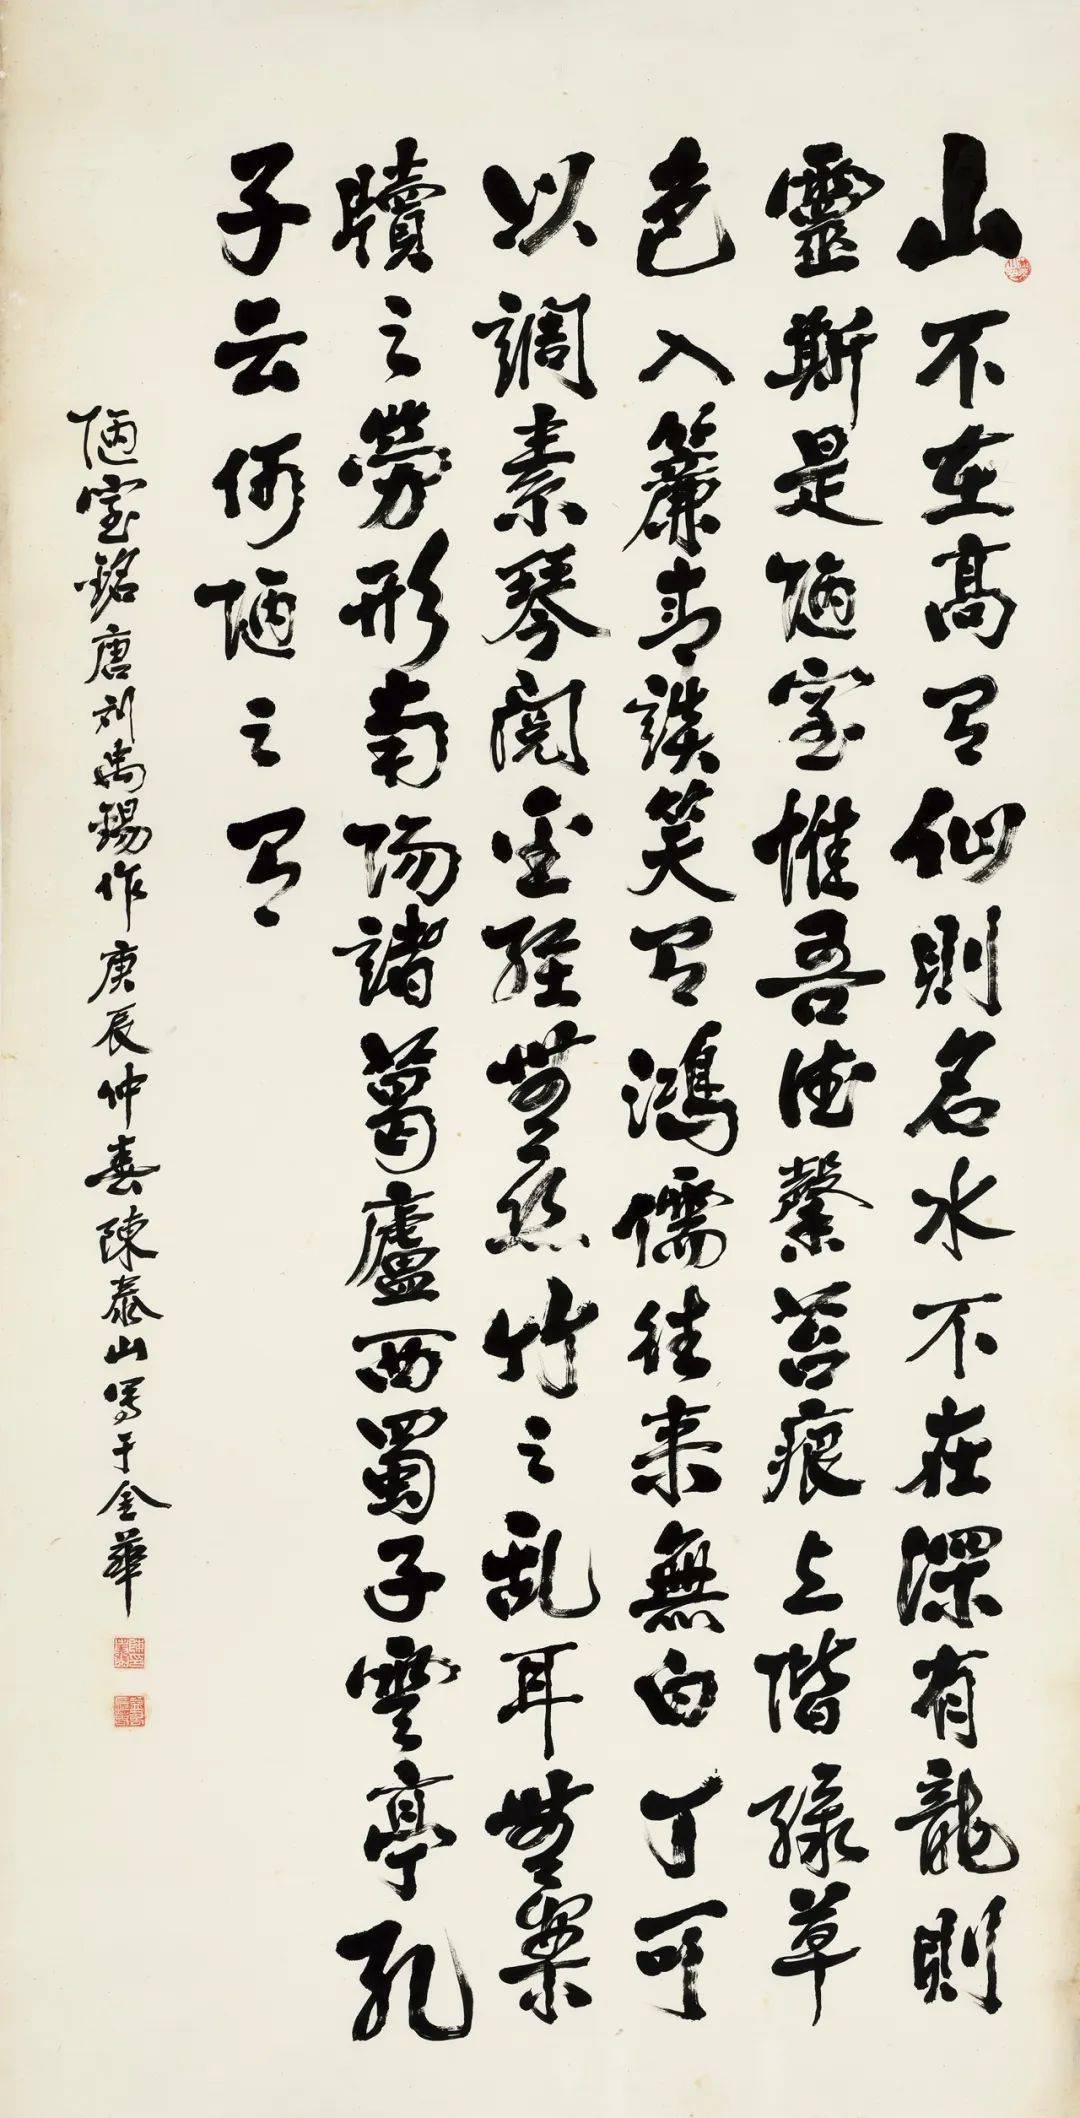 山不在高有仙則名水不在深有龍則
靈斯是陋室惟吾德馨苔痕上階緑草
色入簾青談笑有鴻儒往来無白丁可
以調素琴閲金經無絲竹之乱耳無案
牘之勞形南陽諸葛廬西蜀子雲亭孔
子云何陋之有
陋室銘唐刘禹錫作庚辰仲春陳泰山寫于金華